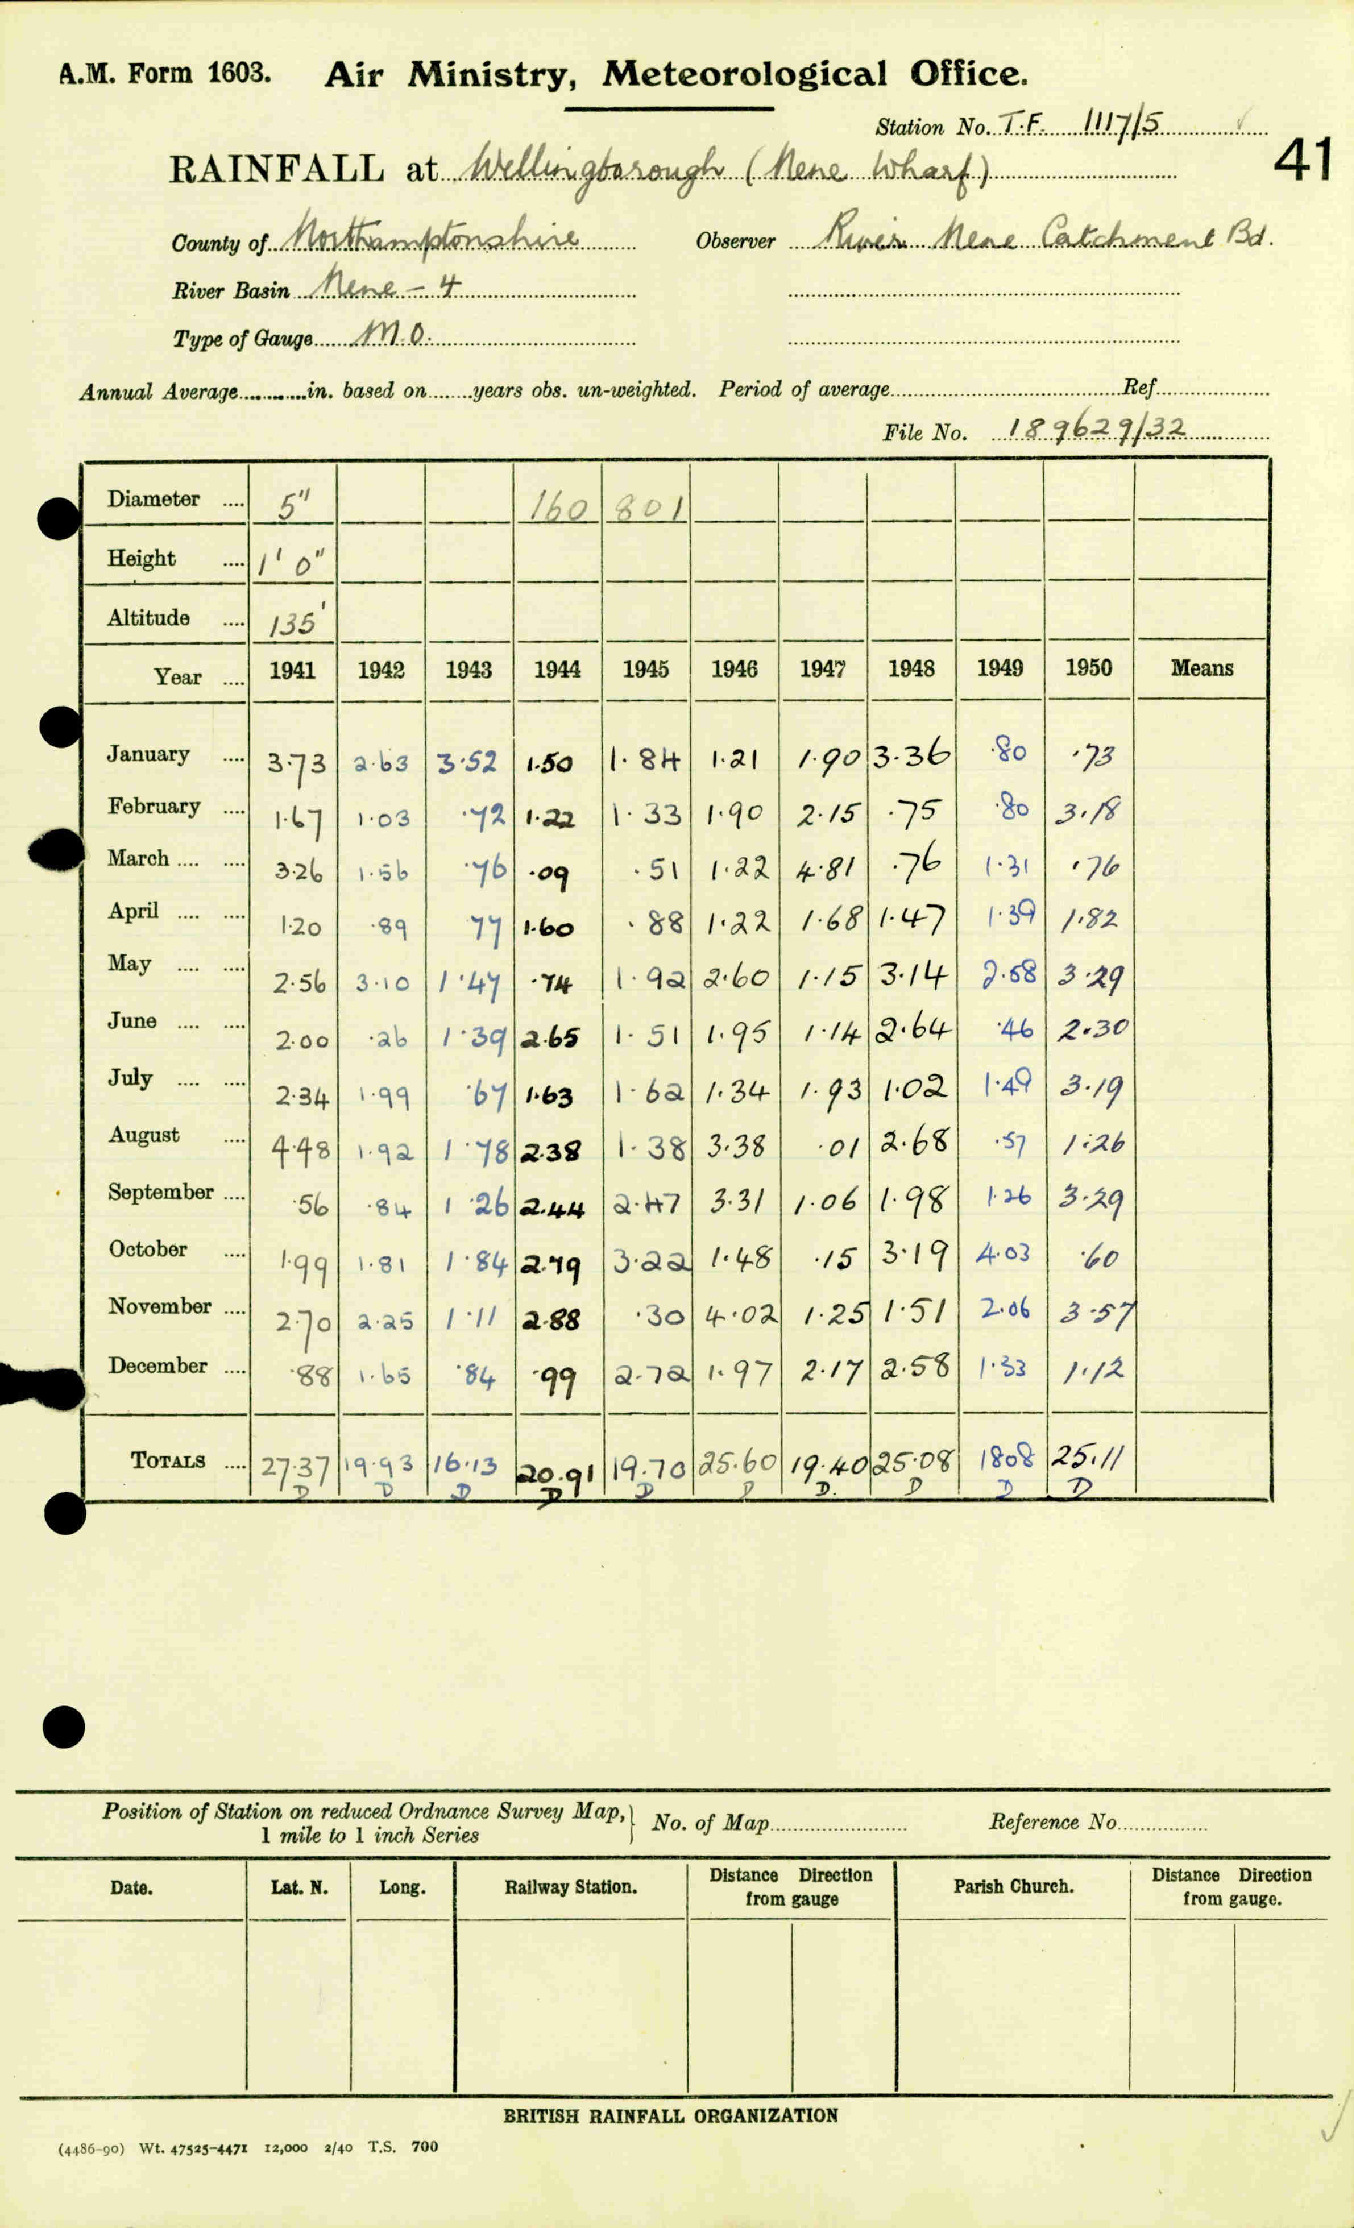 A.M. Form 1603. Air Ministry, Meteorological Office.
Station No. T.F. 1117/5
RAINFALL at Wellingborough (Nene Wharf)
41
County of Northamptonshire Observer River Nene Catchment Bd.
River Basin Nene - 4
Type of Gauge M.O.
Annual Average in. based on years obs. un-weighted. Period of average Ref
File No. 189629/32
Diameter 5" 160 801
Height 1' 0"
Altitude 135'
Year 1941 1942 1943 1944 1945 1946 1947 1948 1949 1950 Means
January 3.73 2.63 3.52 1.50 1.84 1.21 1.90 3.36 .80 .73
February 1.67 1.03 .72 1.22 1.33 1.90 2.15 .75 .80 3.18
March 3.26 1.56 .76 .09 .51 1.22 4.81 .76 1.31 .76
April 1.20 .89 77 1.60 .88 1.22 1.68 1.47 1.39 1.82
May 2.56 3.10 1.47 .74 1.92 2.60 1.15 3.14 2.58 3.29
June 2.00 .26 1.39 2.65 1.51 1.95 1.14 2.64 .46 2.30
July 2.34 1.99 .67 1.63 1.62 1.34 1.93 1.02 1.49 3.19
August 4.48 1.92 1.78 2.38 1.38 3.38 .01 2.68 .57 1.26
September .56 .84 1.26 2.44 2.47 3.31 1.06 1.98 1.26 3.29
October 1.99 1.81 1.84 2.79 3.22 1.48 .15 3.19 4.03 .60
November 2.70 2.25 1.11 2.88 .30 4.02 1.25 1.51 2.06 3.57
December .88 1.65 .84 .99 2.72 1.97 2.17 2.58 1.33 1.12
TOTALS 27.37 19.93 16.13 20.91 19.70 25.60 19.40 25.08 1808 25.11
D D D D D D D. D D D
Position of Station on reduced Ordnance Survey Map, No. of Map Reference No.
1 mile to 1 inch Series
Date. Lat. N. Long. Railway Station. Distance Direction from gauge Parish Church. Distance Direction from gauge.
BRITISH RAINFALL ORGANIZATION
(4486-90) Wt. 47525-4471 12,000 2/40 T.S. 700